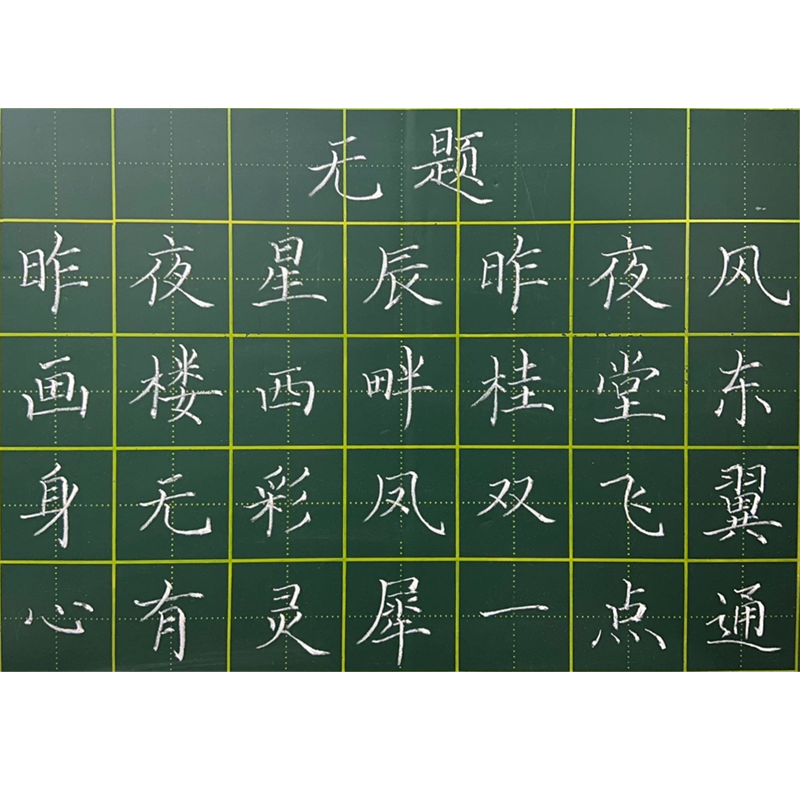 无题
昨夜星辰昨夜风
画楼西畔桂堂东
身无彩凤双飞翼
心有灵犀一点通